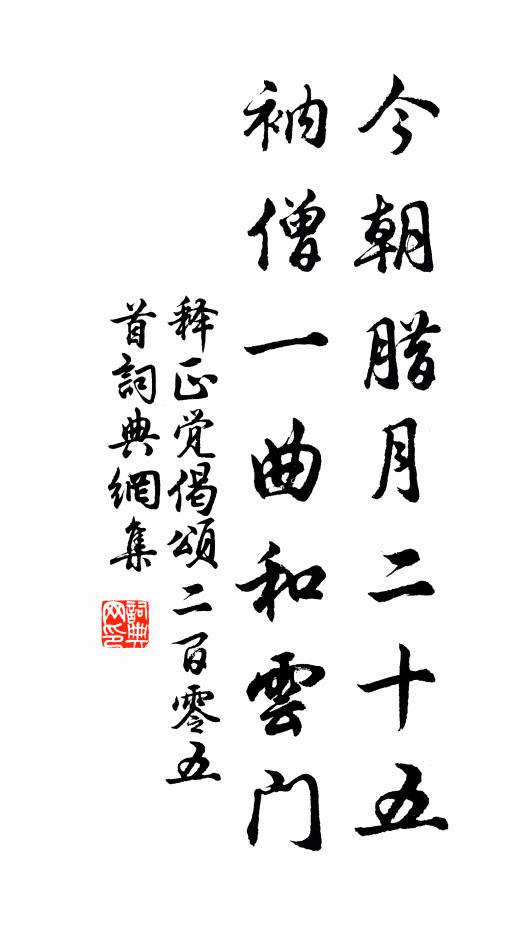 今朝腊月二十五
衲僧一曲和雲门
释正觉偈頌二百零五
首詞典網集
詞典网印